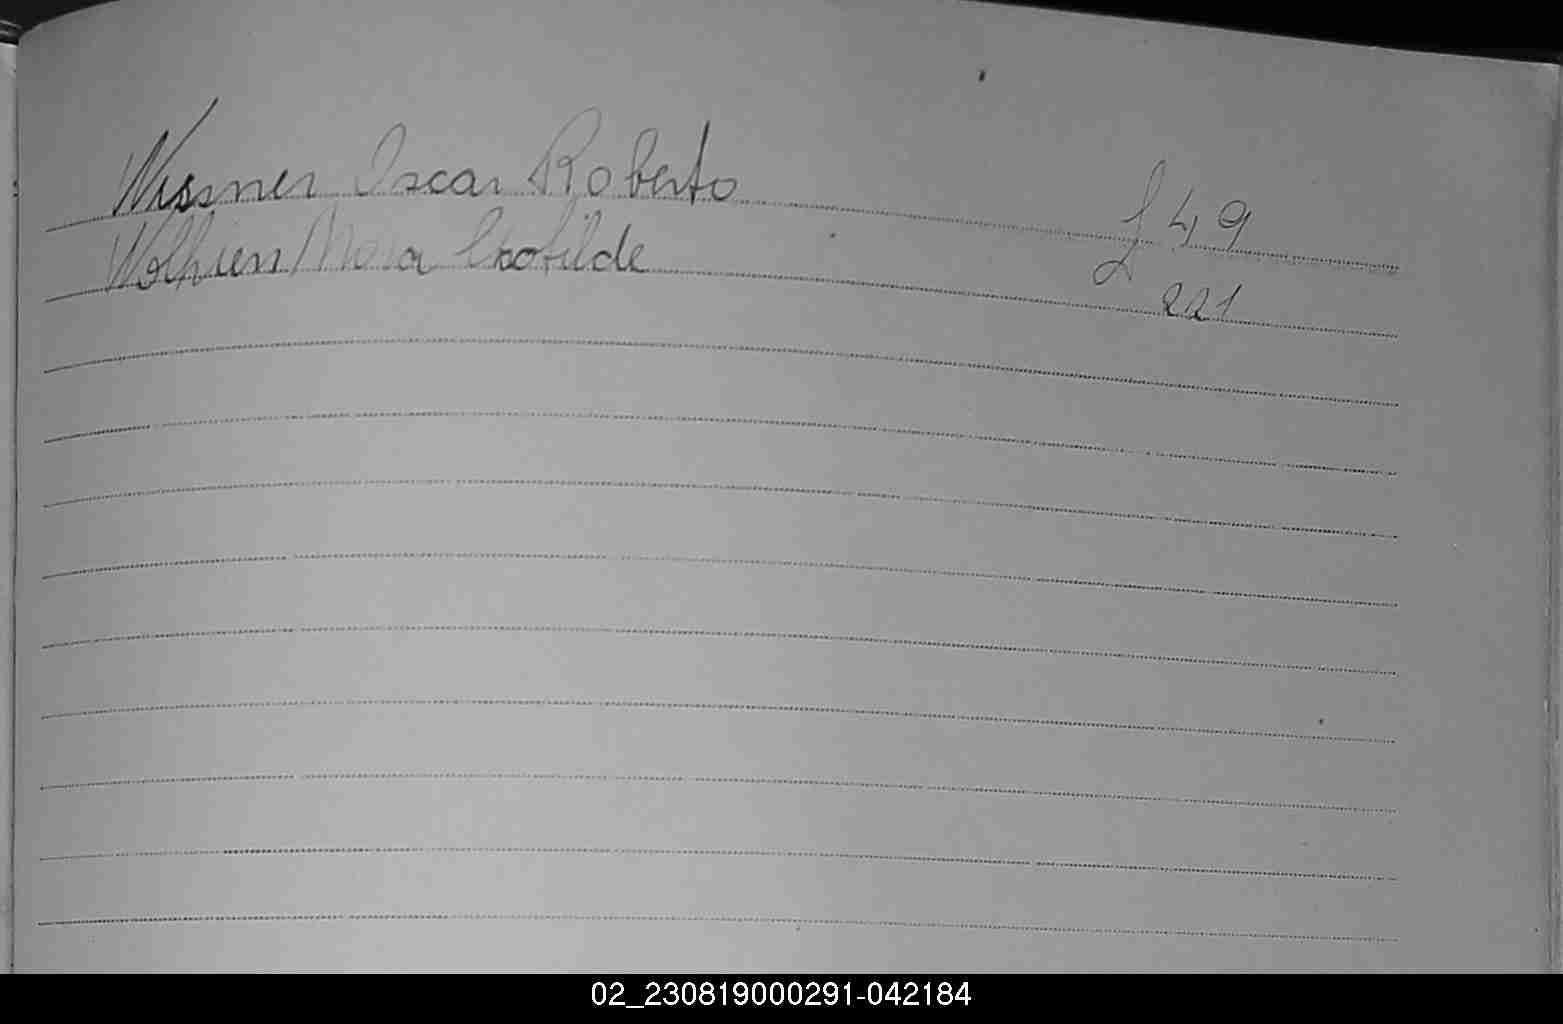 Wisner Oscar Roberto 49
Nora Clotilde 221
02_230819000291-042184